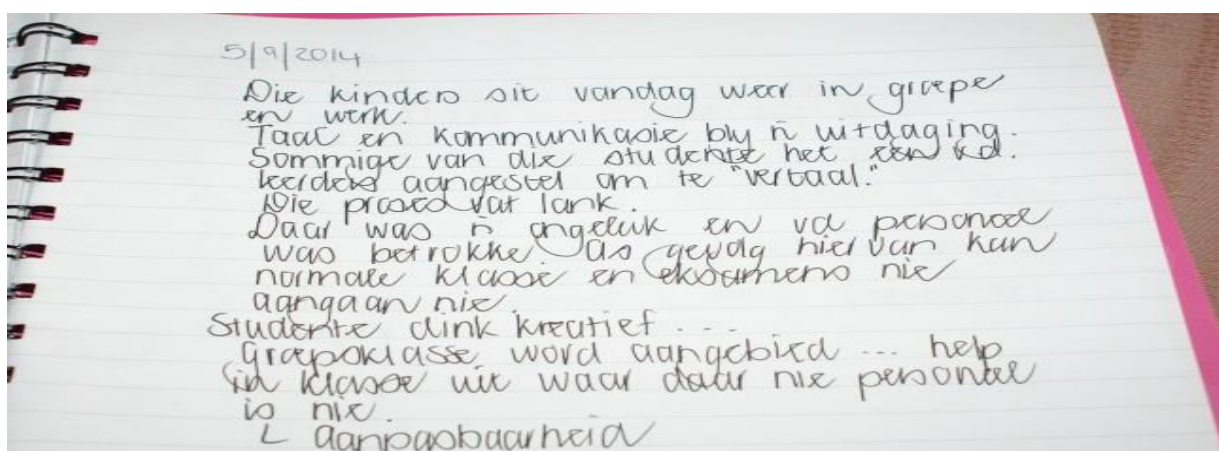 5/9/2014
Die kinders sit vandag weer in groepe
en werk.
Taal en kommunikasie bly 'n uitdaging.
Sommige van die studente het een vd.
leerders aangestel om te "vertaal."
Die proses vat lank.
Daar was 'n ongeluk en vd personeel
was betrokke. As gevolg hiervan kan
normale klasse en eksamens nie
aangaan nie.
Studente dink kreatief ...
Groepsklasse word aangebied ... help
in klasse uit waar daar nie personeel
is nie.
L aanpasbaarheid